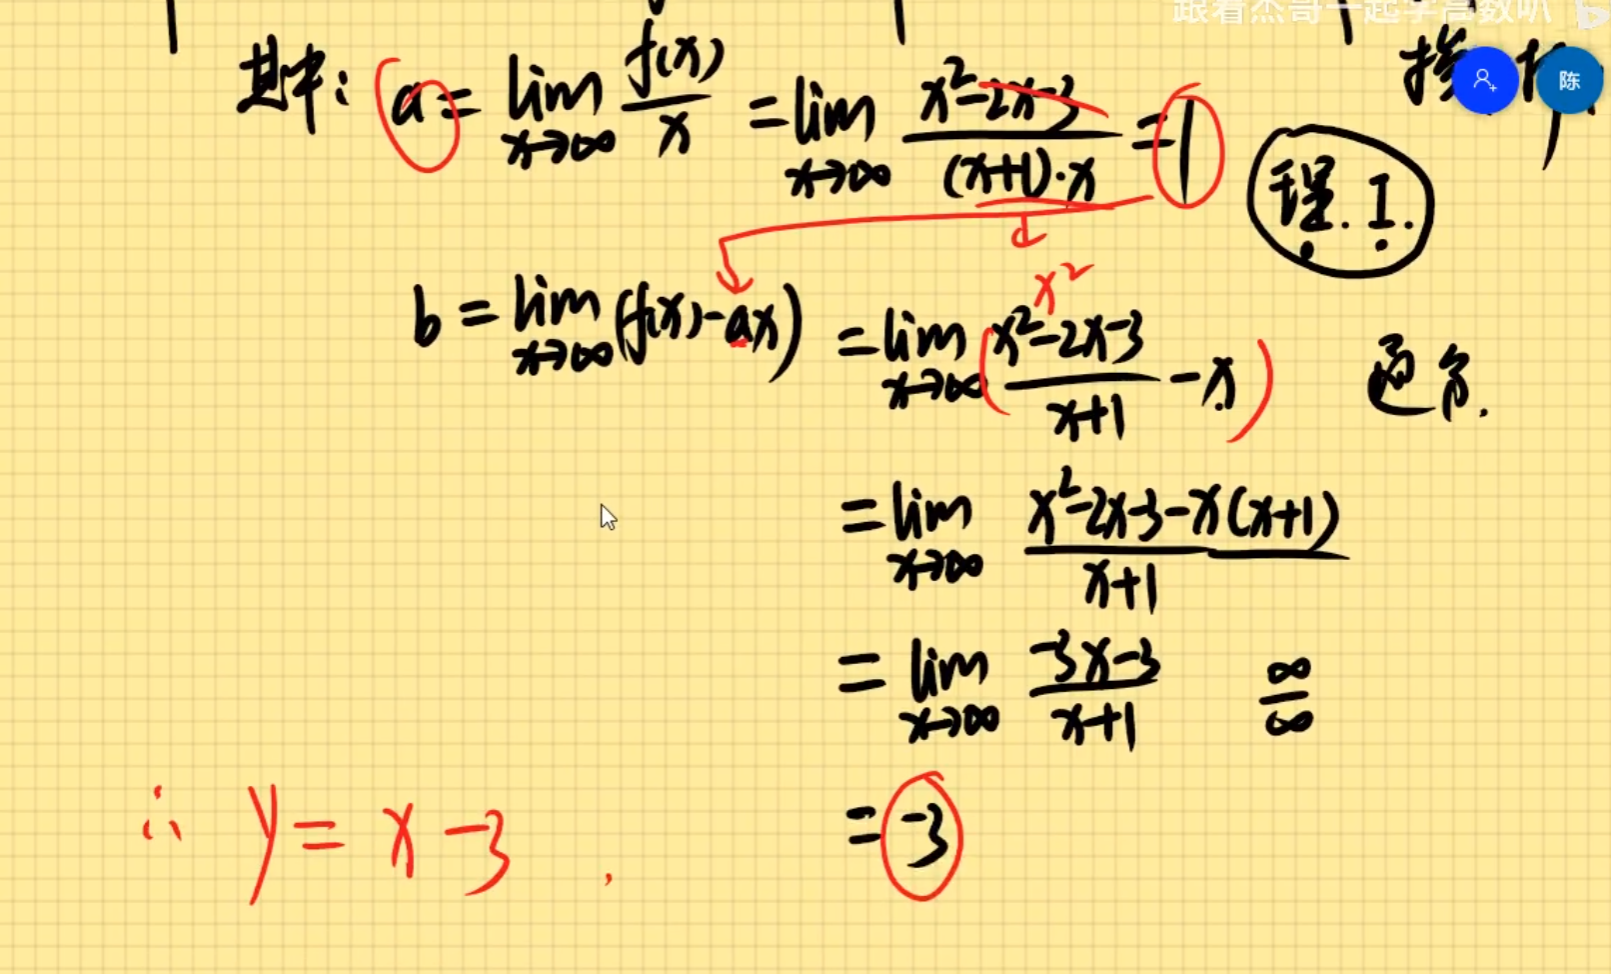 跟着杰哥一起学高数叭
陈
其中: a = lim x→∞ f(x)/x = lim x→∞ (x²-2x-3)/((x+1)·x) = 1
理.工.
x²
b = lim x→∞ (f(x)-ax) = lim x→∞ ((x²-2x-3)/(x+1) - x) 通分.
= lim x→∞ (x²-2x-3-x(x+1))/(x+1)
= lim x→∞ (-3x-3)/(x+1) ∞/∞
= -3
∴ y = x-3